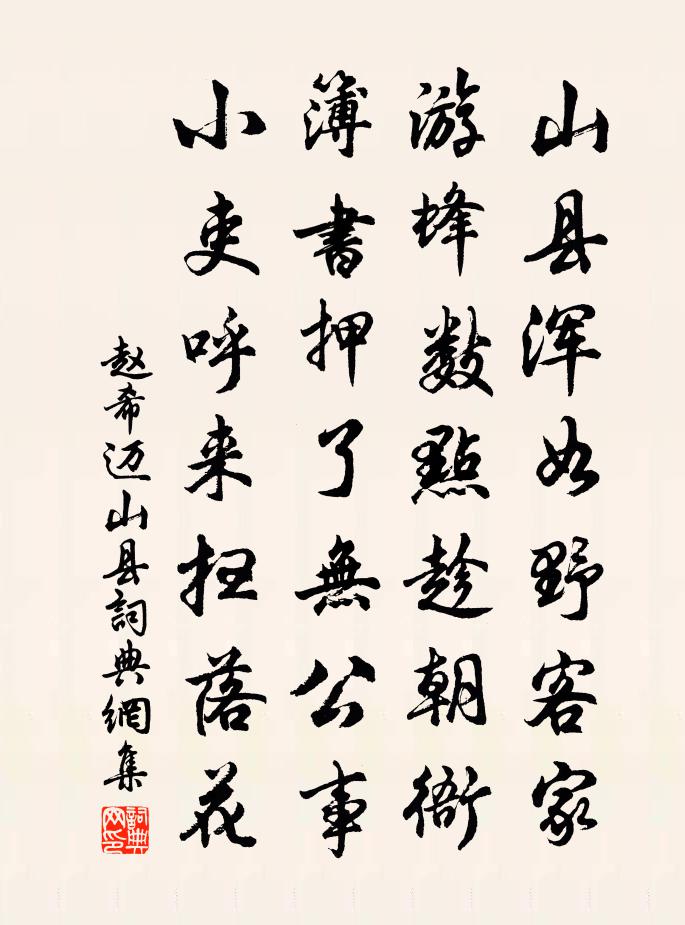 山县浑如野客家
游蜂数點趁朝衙
簿書押了無公事
小吏呼来扫落花
赵希迈山县詞典網集
詞典网印